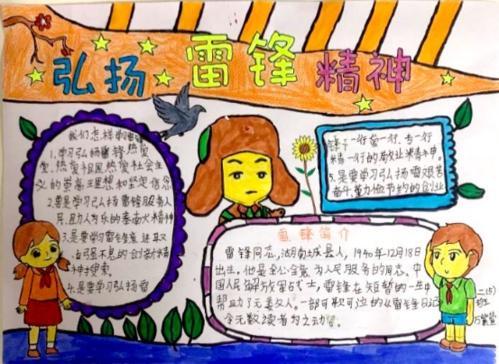 弘扬 雷锋 精神
我们怎样学雷锋
1.学习弘扬雷锋热爱党
热爱祖国,热爱社会主
义的崇高理想和坚定信念
2.要是学习弘扬雷锋服务人
民,助人为乐的奉献精神
3.是要学习雷锋锐意进取
自强不息的创新精
神
4.是要学习弘扬雷
锋干一行爱一行、专一行
精一行的敬业精神.
5.是要学习弘扬雷艰苦
奋斗、勤俭节约的创业
雷锋简介
雷锋同志,湖南城县人,1940年12月18日
出生,他是全心全意为人民服务的同志,中
国人民解放军战士,雷锋在短暂的一生中
帮助了无数人.一部可歌可泣的《雷锋日记
令无数读者为之动容。
二(5)
班